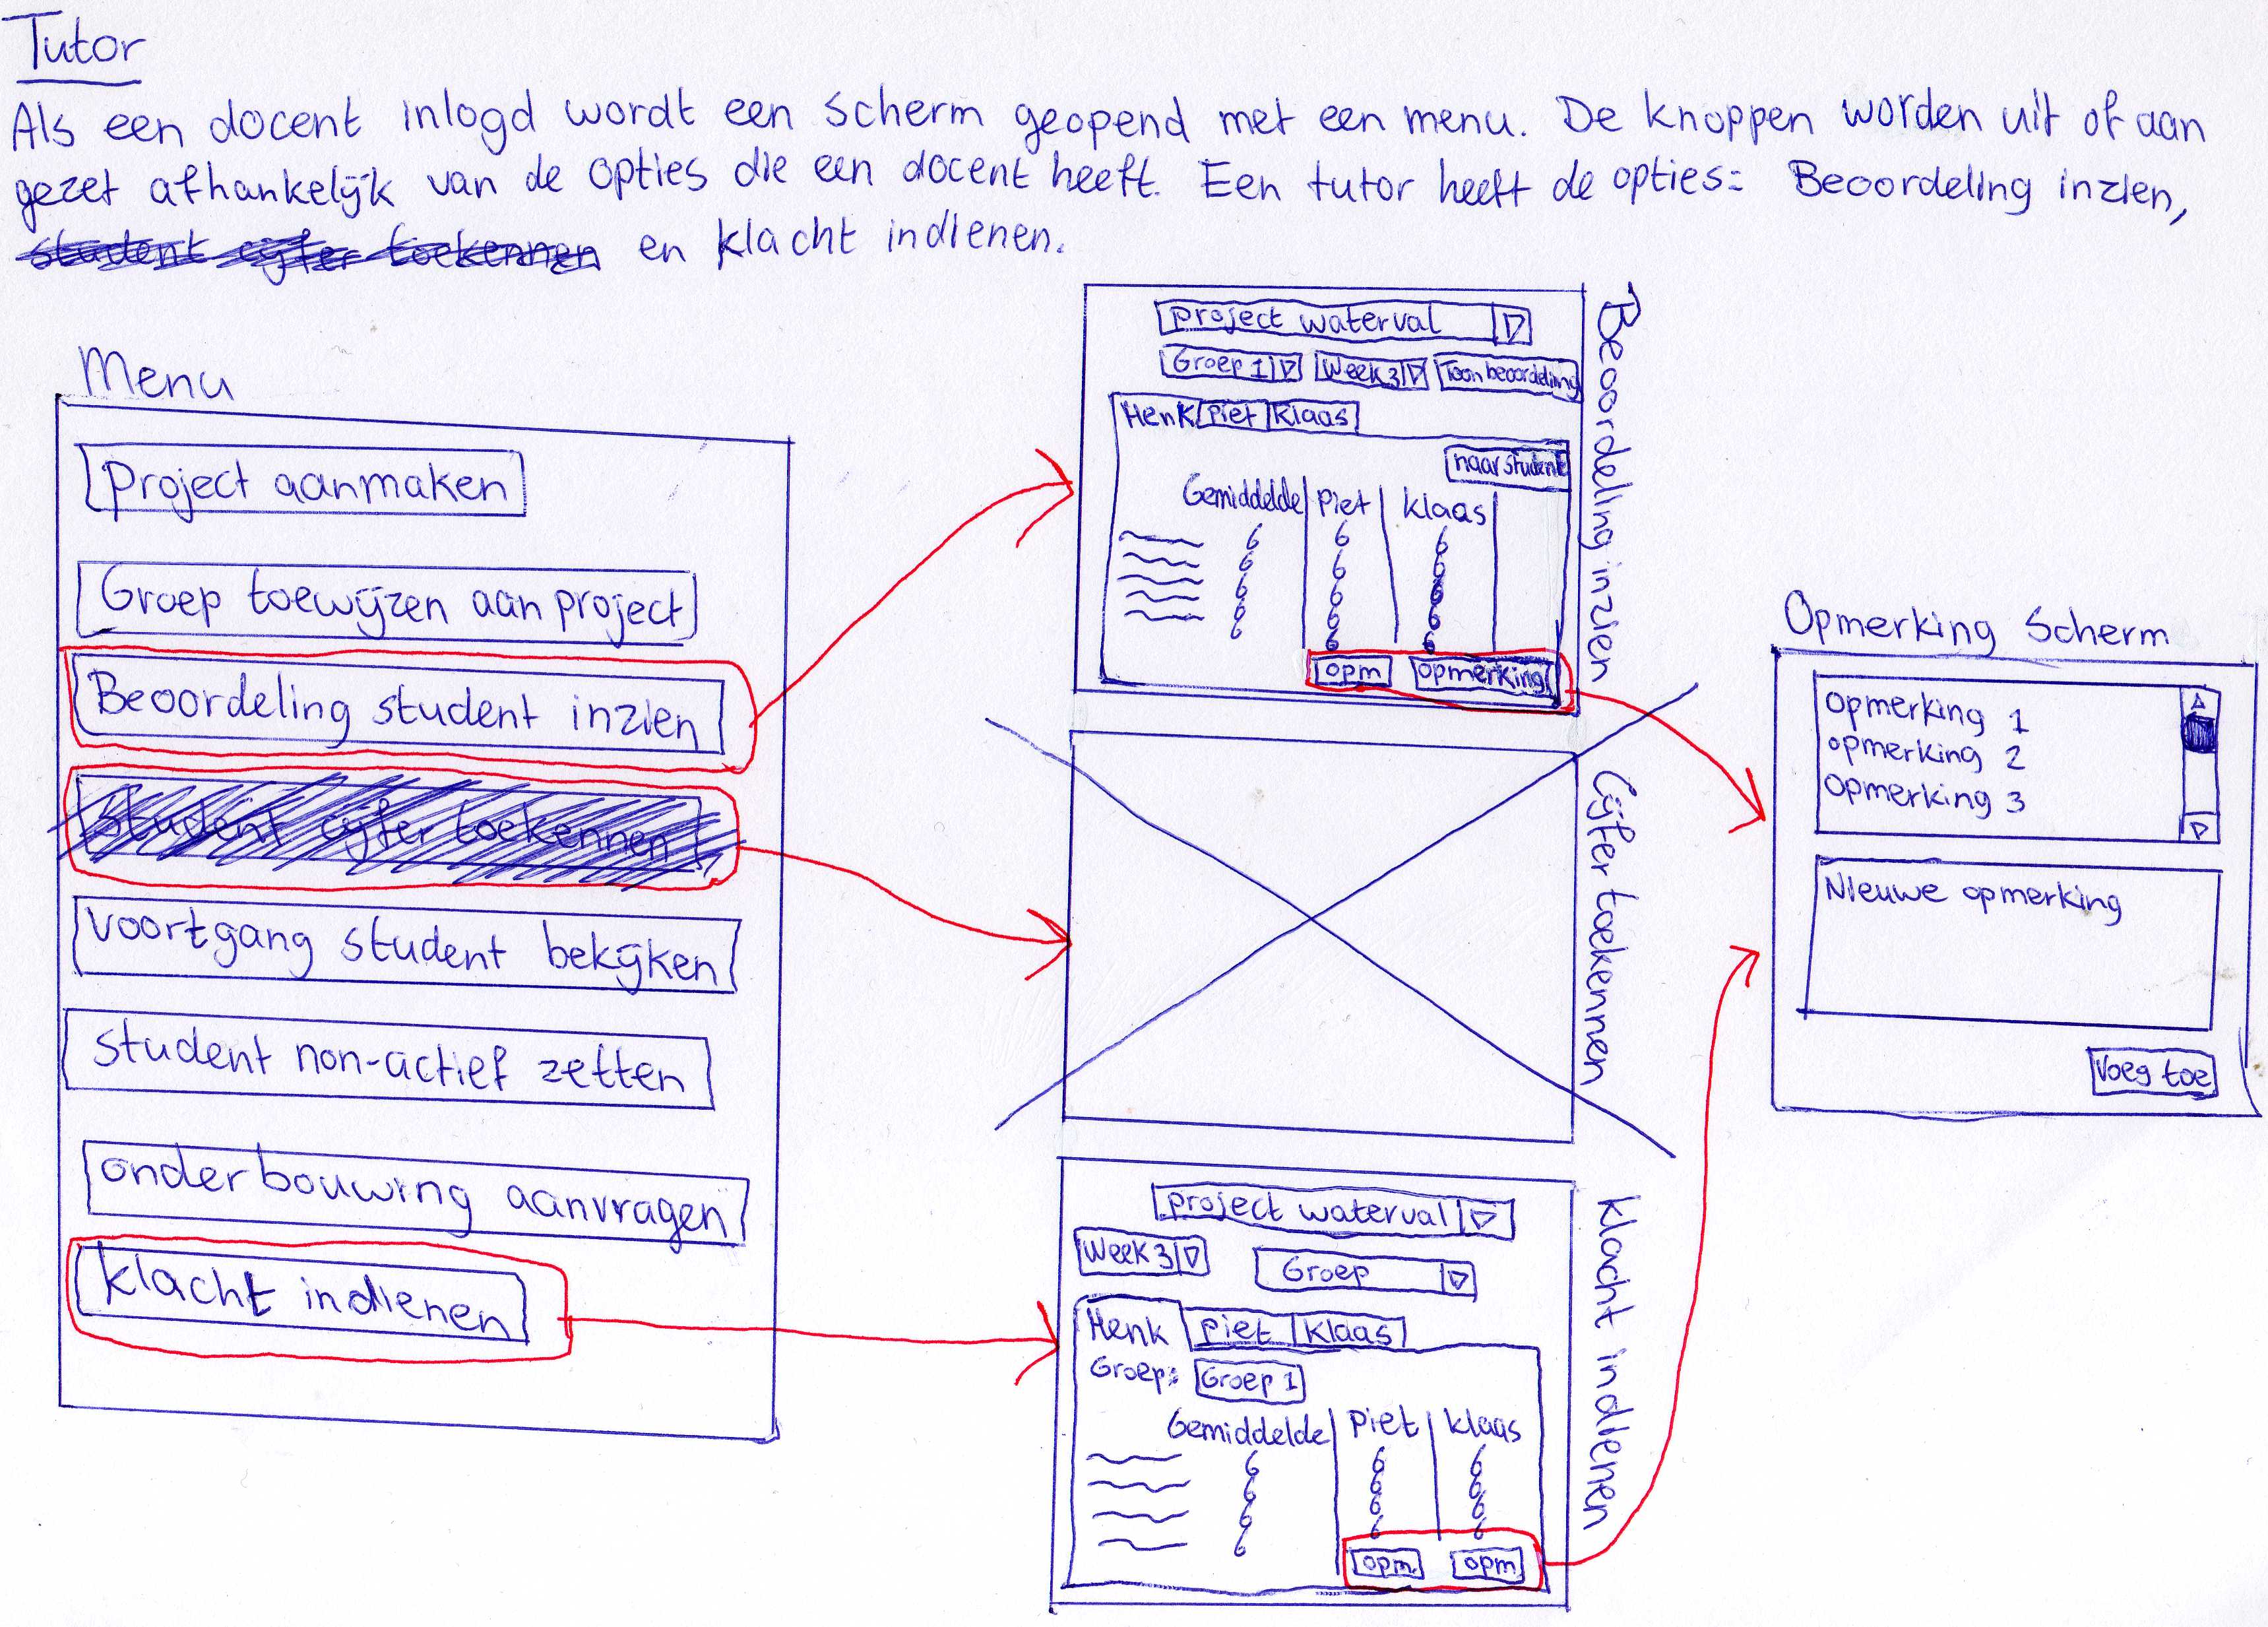 Tutor
Als een docent inlogd wordt een scherm geopend met een menu. De knoppen worden uit of aan
gezet afhankelijk van de opties die een docent heeft. Een tutor heeft de opties: Beoordeling inzien,
student cijfer toekennen en klacht indienen.
Menu
Project aanmaken
Groep toewijzen aan project
Beoordeling student inzien
student cijfer toekennen
voortgang student bekijken
student non-actief zetten
onderbouwing aanvragen
klacht indienen
Beoordeling inzien
project waterval
Groep 1 Week 3 Toon beoordeling
Henk Piet Klaas
naar student
Gemiddelde Piet Klaas
6 6 6
6 6 6
6 6 6
6 6 6
6 6 6
6 6
opm opmerking
Cijfer toekennen
klacht indienen
project waterval
Week 3 Groep
Henk Piet Klaas
Groep: Groep 1
Gemiddelde Piet Klaas
6 6 6
6 6 6
6 6 6
6 6 6
opm opm
Opmerking Scherm
opmerking 1
opmerking 2
opmerking 3
Nieuwe opmerking
Voeg toe